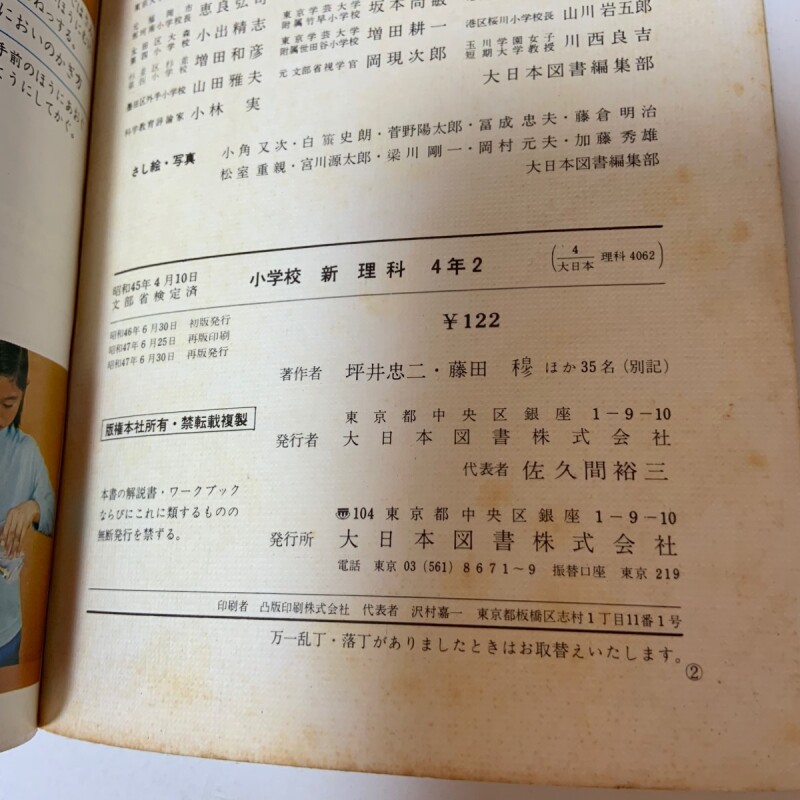 においのかぎ方
手前のほうにあお
うにしてかぐ。
恵良弘司
坂本尚敏
港区桜川小学校長 山川岩五郎
小出精志
東京学芸大学附属世田谷小学校 増田耕一
玉川学園女子短期大学教授 川西良吉
増田和彦
元文部省視学官 岡現次郎
大日本図書編集部
墨田区外手小学校 山田雅夫
科学教育評論家 小林 実
さし絵・写真
小角又次・白籏史朗・菅野陽太郎・冨成忠夫・藤倉明治
松室重親・宮川源太郎・梁川剛一・岡村元夫・加藤秀雄
大日本図書編集部
昭和45年4月10日
文部省検定済
小学校 新 理科 4年2
4
大日本 理科4062
昭和46年6月30日 初版発行
昭和47年6月25日 再版印刷
昭和47年6月30日 再版発行
¥122
著作者 坪井忠二・藤田 穆 ほか35名(別記)
版権本社所有・禁転載複製
東京都中央区銀座 1-9-10
発行者 大日本図書株式会社
代表者 佐久間裕三
本書の解説書・ワークブック
ならびにこれに類するものの
無断発行を禁ずる。
〠104 東京都中央区銀座 1-9-10
発行所 大日本図書株式会社
電話 東京 03 (561) 8671~9 振替口座 東京 219
印刷者 凸版印刷株式会社 代表者 沢村嘉一 東京都板橋区志村1丁目11番1号
万一乱丁・落丁がありましたときはお取替えいたします。
②